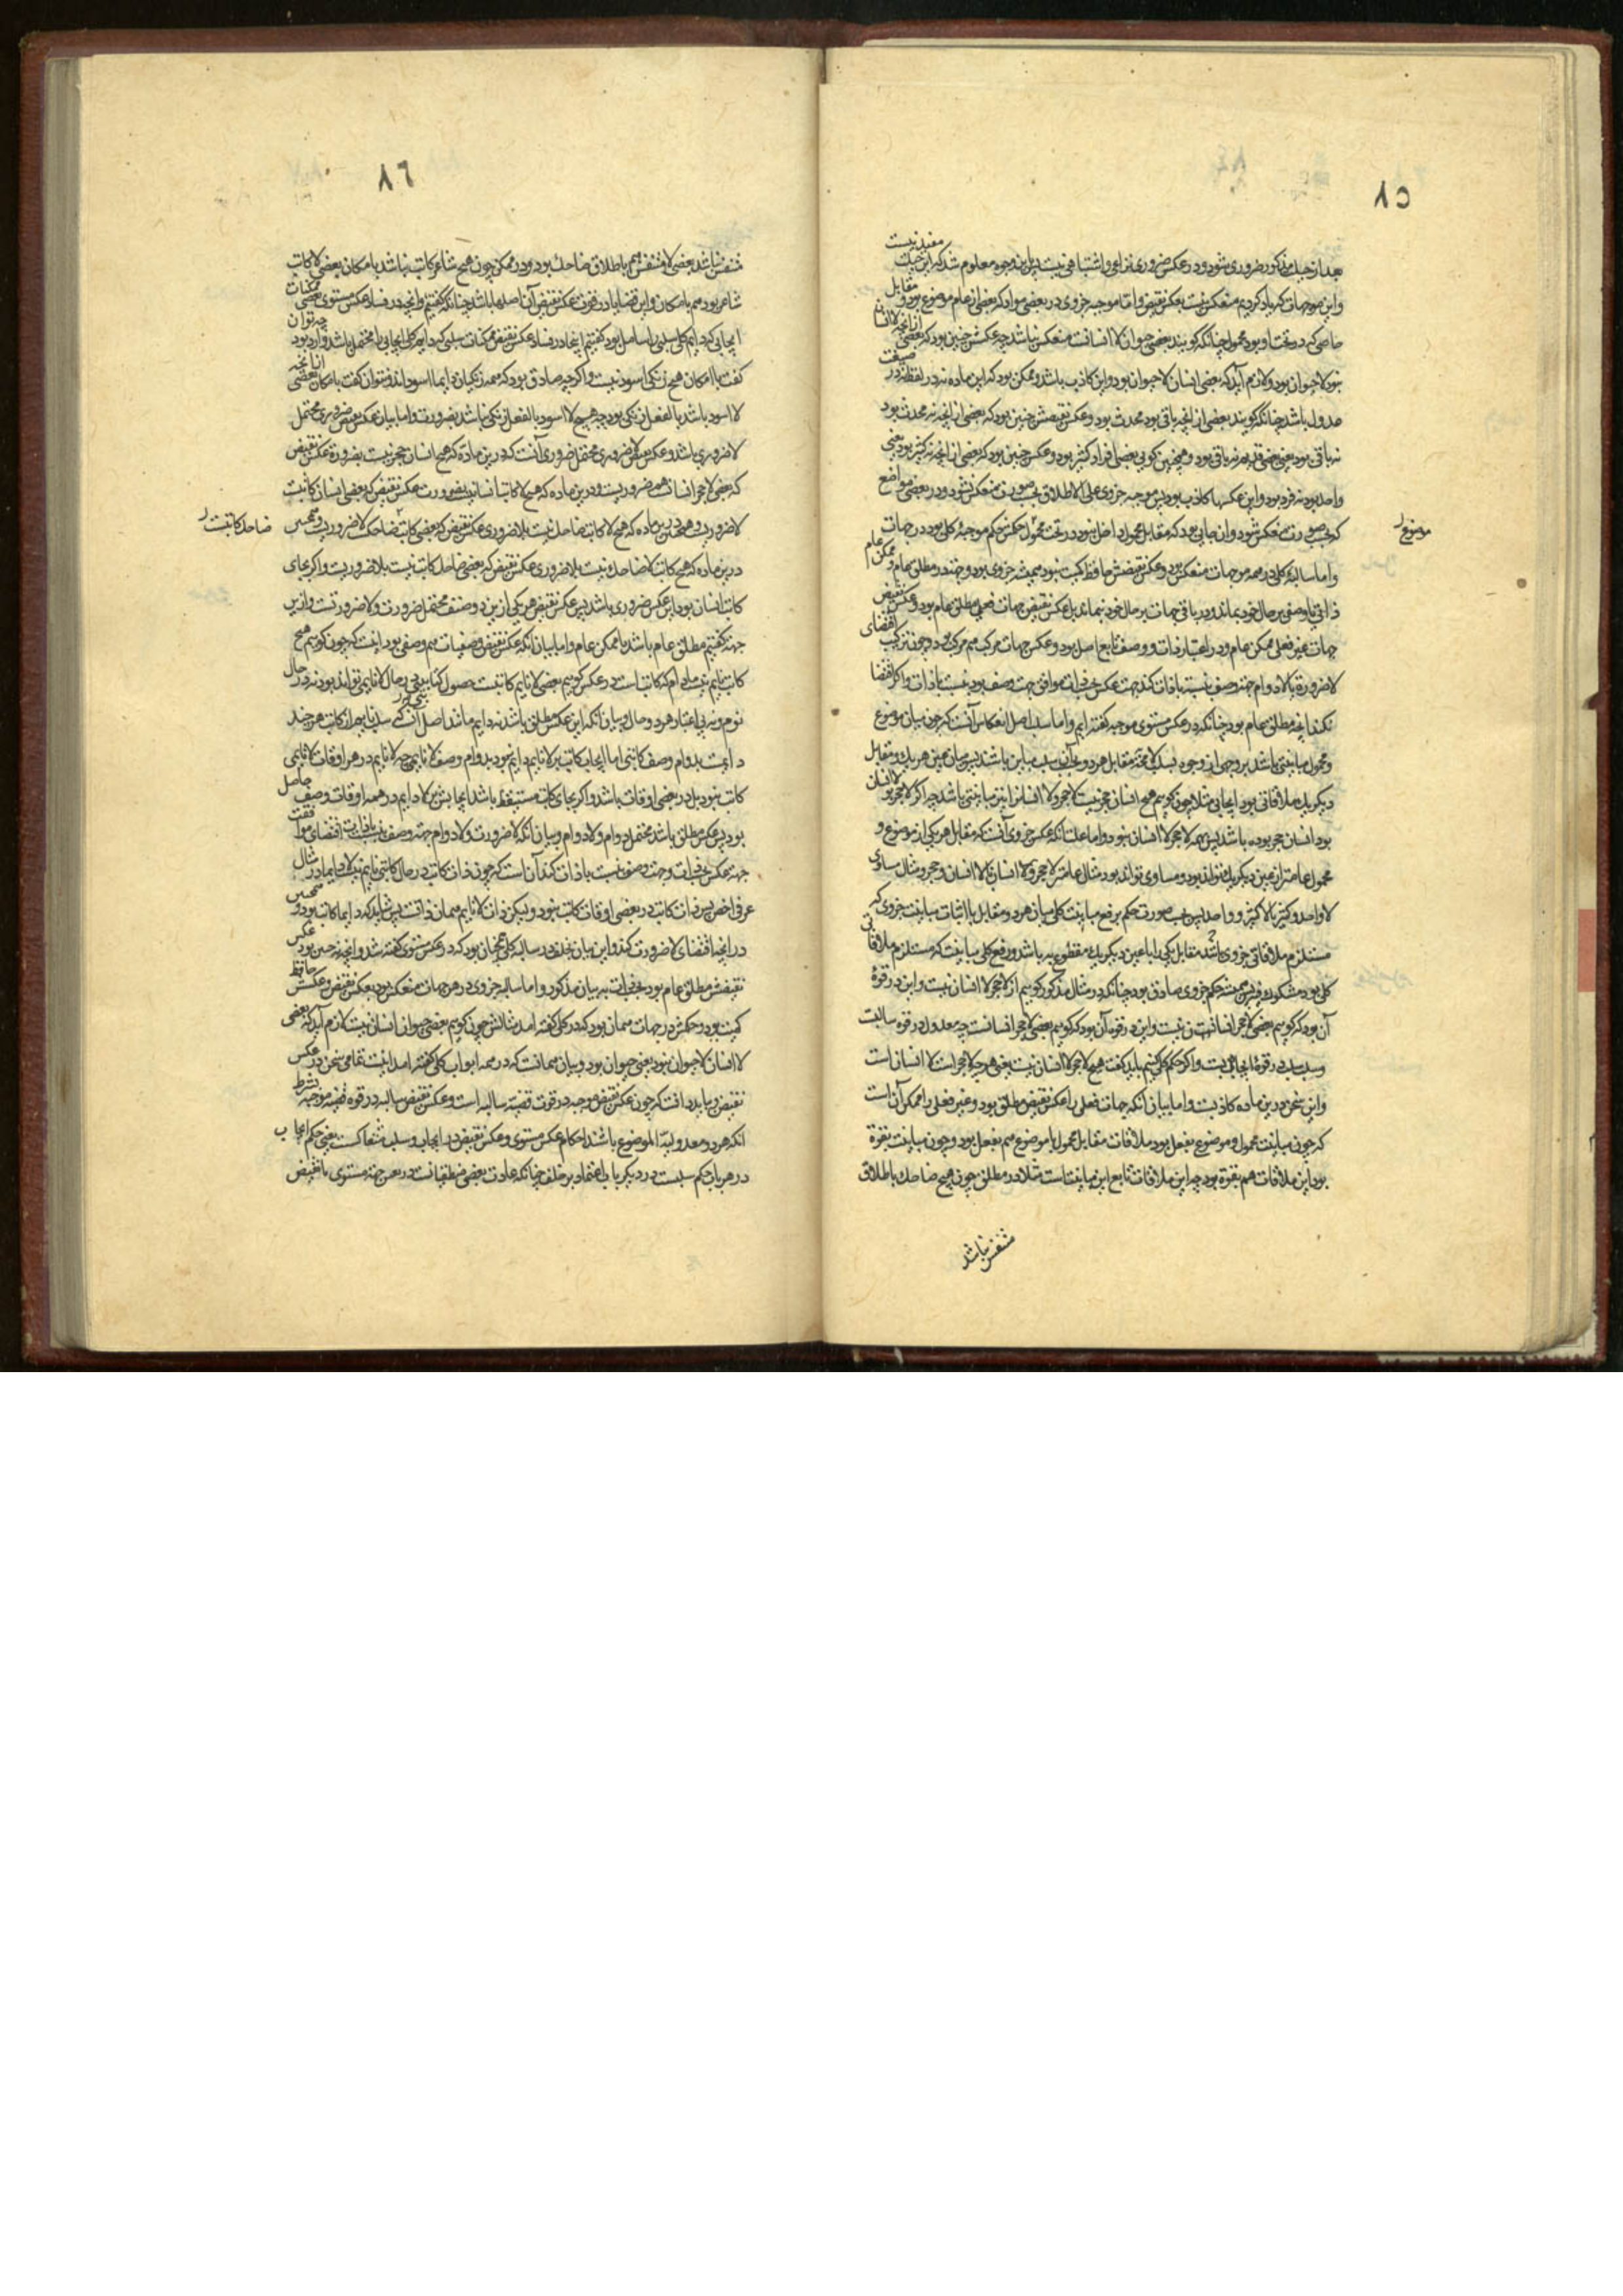 ٨٥
مفید نیست
بعد از حیله مذکور ضروری شود و در عکس ضروری نزاعی و اشتباهی نیست پس این وجوه معلوم شد که این حیلت
و این موجهات که یاد کردیم منعکس نیست بعکس نقیض و اما موجبه جزوی در بعضی مواد که بعضی از عام موضوع بود و مقابل
خاصی که در تحت او بود محمول چنانکه گویند بعضی حیوان لا انسانست منعکس نباشد چه عکسش چنین بود که بعضی از آنچه لا انسان
نبود لا حیوان بود و لازم آید که بعضی انسان لا حیوان بود و این کاذب باشد و ممکن بود که این ماده نه در لفظ نه در صیغت
معدول باشد چنانکه گویند بعضی از انچه باقی بود محدث بود و عکس نقیضش چنین بود که بعضی از انچه نه محدث بود
نه باقی بود یعنی بعضی قدیم نه باقی بود و همچنین گویی بعضی افراد کثیر بود و عکس چنین بود که بعضی از انچه نه کثیر بود یعنی
واحد بود نه فرد بود و این عکسها کاذب بود پس موجبه جزوی علی الاطلاق بحسب صورت منعکس نشود و در بعضی مواضع
که بحسب صورت منعکس شود و ان جایی بود که مقابل محمول اصل نبود در تحت محمول عکس حکم موجبه کلی بود در جهات
موضوع
و اما سالبه کلی در همه موجهات منعکس بود و عکس نقیضش حافظ کمیت نبود همیشه جزوی بود و جهت در مطلق عام و ممکن عام
ذاتی یا وصفی بر حال خود بماند و در باقی جهات بر حال خود نماند بل عکس نقیض جهات فعلی مطلق عام بود و عکس نقیض
جهات غیر فعلی ممکن عام و در اعتبار ذات و وصف تابع اصل بود و عکس جهات مرکب هم مرکب بود و چون ترکیب اقتضای
لا ضرورة یا لا دوام جهت وصف نسبت با ذات کند جهت عکس بحسب ذات موافق جهت وصف بود نسبت با ذات و اگر اقتضا
نکند انچه مطلق عام بود چنانکه در عکس مستوی موجبه گفته ایم و اما سبب اصل انعکاس آنست که چون میان موضوع
و محمول مباینتی باشد بر وجهی از وجوه سلب لامحه مقابل هر دو بر آن سلب مباین باشد پس میان عین هر یک و مقابل
دیگر یک ملاقاتی بود ایجابی مثلا چون گوییم هیچ انسان حجر نیست لا حجر و لا انسان را نیز مباینتی باشد چه اگر لا حجر لا انسان
بود انسان حجر بوده باشد پس همه لا حجر لا انسان نبود و اما علت انکه عکس جزوی آنست که مقابل هر یکی از موضوع و
محمول عامتر از عین دیگر یک تواند بود و مساوی تواند بود مثال عامتر لا حجر و لا انسان با انسان و حجر و مثال مساوی
لا واحد و کثیر با لا کثیر و واحد پس بحسب صورت حکم بر رفع مباینت کلی میان هر دو مقابل با اثبات مباینت جزوی که
مستلزم ملاقاتی جزوی باشد مقابل یکی را با عین دیگر یک مقطوع به باشد و رفع کلی مباینت که مستلزم ملاقاتی
کلی بود مشکوک فیه پس همیشه حکم جزوی صادق بود چنانکه در مثال مذکور گوییم از لا حجر لا انسان نیست و این در قوة
آن بود که گوییم بعضی لا حجر لا انسان نیست و این در قوة آن بود که گوییم بعضی لا حجر انسانست چه معدول در قوه سالبت
و سلب سلب در قوة ایجاب است و اگر حکم کلی کنیم باید گفت هیچ لا حجر لا انسان نیست یعنی هر چه لا حجر است لا انسان است
و این سخن در این ماده کاذبست و اما بیان آنکه جهات فعلی را عکس نقیض مطلق بود و غیر فعلی را ممکن آن است
که چون مباینت محمول و موضوع بفعل بود ملاقات مقابل محمول با موضوع هم بفعل بود و چون مباینت بقوة
بود این ملاقات هم بقوة بود چه این ملاقات تابع این مباینت است مثلا در مطلق چون هیچ ضاحک باطلاق
متنفس نباشد
٨٦
متنفس نباشد بعضی لا متنفس هم باطلاق ضاحک بود و در ممکن چون هیچ شاعر کاتب نباشد بامکان بعضی لا کاتب
شاعر بود هم بامکان و این قضایا در قوت عکس نقیض آن اصلها باشد چنانکه گفتیم و انچه در فساد عکس مستوی بعضی ممکنات
ایجابی که دایم کلی سلبی را شامل بود گفتیم اینجا در فساد عکس نقیض ممکنات سلبی که دایم کلی ایجابی را محتمل باشد وارد بود چه توان
گفت بامکان هیچ زنگی اسود نیست و اگر چه صادق بود که همه زنگیان دایما اسوداند و نتوان گفت بامکان بعضی از انچه
لا اسود باشد بالفعل زنگی بود چه هیچ لا اسود بالفعل زنگی نباشد بضرورت و اما بیان عکس بعض ضروری محتمل
لا ضروری باشد و عکس بعض لا ضروری محتمل ضروری آنست که در این ماده که هیچ انسان حجر نیست بضرورة عکس نقیض
که بعضی لا حجر انسانست هم ضروریست و در این ماده که هیچ لا کاتب انسان نیست بضرورت عکس نقیض که بعضی انسان کاتبست
لا ضروریست و همچنین در این ماده که هیچ لا کاتب ضاحک نیست بلا ضروری عکس نقیض که بعضی کاتب ضاحک لا ضروریست و همچنین
ضاحک کاتبست
در این ماده که هیچ کاتب لا ضاحک نیست بلا ضروری عکس نقیض که بعضی ضاحک کاتب نیست بلا ضروریست و اگر بجای
کاتب انسان بود این عکس ضروری باشد پس عکس نقیض هر یکی از این دو صنف محتمل ضرورت و لا ضرورتست و از این
جهة گفتیم مطلق عام باشد یا ممکن عام و اما بیان انکه عکس نقیض وصفیات هم وصفی بود اینست که چون گوییم هیچ
کاتب نایم نیست مادام که کاتب است در عکس گوییم بعضی لا نایم کاتبست حصول کتابت در حال لا نایمی تواند بود نه در حال
نوم و نه بی اعتبار هر دو حال و بیان آنکه این عکس مطلق باشد نه دایم مانند اصل آنست که سلب نایم از کاتب هر چند
دایمست بدوام وصف کاتبی اما ایجاب کاتب بر لا نایم دایم نبود بدوام وصف لا نایمی چه لا نایم در هر اوقات لا نایمی
کاتب نبود بل در بعضی اوقات باشد و اگر بجای کاتب مستیقظ باشد ایجابش بر لا دایم در همه اوقات وصف حاصل
بود پس عکس مطلق باشد محتمل دوام و لا دوام و بیان انکه لا ضرورت و لا دوام جهة وصف نسبت با ذات اقتضای موافقت
جهة عکس بحسب ذات و جهت وصف نسبت با ذات کند آن است که چون ذات کاتب در حال کاتبی نایم نیست لا دایما در مثال
عرفی اخص پس ذات کاتب در بعضی اوقات کاتب نبود و لیکن ذات لا نایم همان ذاتست پس شاید که دایما کاتب بود و همچنین
در انچه اقتضای لا ضرورت کند و این بیان بخلف در سالبه کلی همچنان بود که در عکس مستوی گفته شد و انچه نه چنین بود عکس
نقیضش مطلق عام بود بحسب ذات به بیان مذکور و اما سالبه جزوی در هر جهات منعکس بود بعکس نقیض و عکسش حافظ
کمیت بود و حکمش در جهات همان بود که در کلی گفته امد مثالش چون گوییم بعضی حیوان انسان نیست لازم آید که بعضی
لا انسان لا حیوان نبود یعنی حیوان بود و بیان همانست که در همه ابواب کلی گفته امد اینست تمامی سخن در عکس
نقیض و بباید دانست که چون عکس نقیض موجبه در قوت قضیه سالبه است و عکس نقیض سالبه در قوه قضیه موجبه بشرط
انکه هر دو معدولیة الموضوع باشند احکام عکس مستوی و عکس نقیض در ایجاب و سلب متعاکست یعنی حکم ایجاب
در هر باب حکم سلبست در دیگر باب اعتماد بر خلف چنانکه عادت بعضی منطقیانست در تعریف جهة مستوی یا نقیض